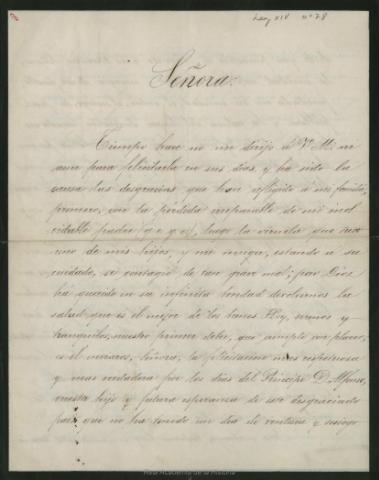 Leg XIV nº 78
Señora:
Tiempo hace no me dirijo á V. M. ni
aun para felicitarla en sus dias, y ha sido la
causa las desgracias que han afligido á mi familia,
primero, con la pérdida irreparable de mi inol
vidable padre (q. e. g. e), luego la viruela que
uno de mis hijos, y mi muger, estando á su
cuidado, se contagió de tan grave mal; pero Dios
ha querido en su infinita bondad devolvernos la
salud, que es el mejor de los bienes. Hoy, sanos y
tranquilos, nuestro primer deber, que cumplo con placer,
es el enviaros, Señora, la felicitacion mas respetuosa
y mas verdadera por los dias del Principe D. Alfonso,
vuestro hijo y futura esperanza de este desgraciado
pais, que no ha tenido un dia de ventura y sosiego
Real Academia de la Historia